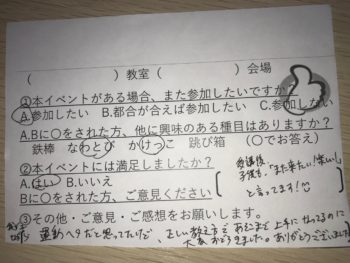 (　　　　　)教室(　　　　　)会場
①本イベントがある場合、また参加したいですか?
A.参加したい　B.都合が合えば参加したい　C.参加しない
A.Bに○をされた方、他に興味のある種目はありますか?
鉄棒　なわとび　かけっこ　跳び箱　(○でお答え)
②本イベントには満足しましたか?
A.はい　B.いいえ
Bに○をされた方、ご意見ください
「また来たい!楽しい」
と言ってます!
③その他・ご意見・ご感想をお願いします。
運動ヘタだと思ってたけど、正しい教え方であそこまで上手になってるのに
大変おどろきました。ありがとうございました!